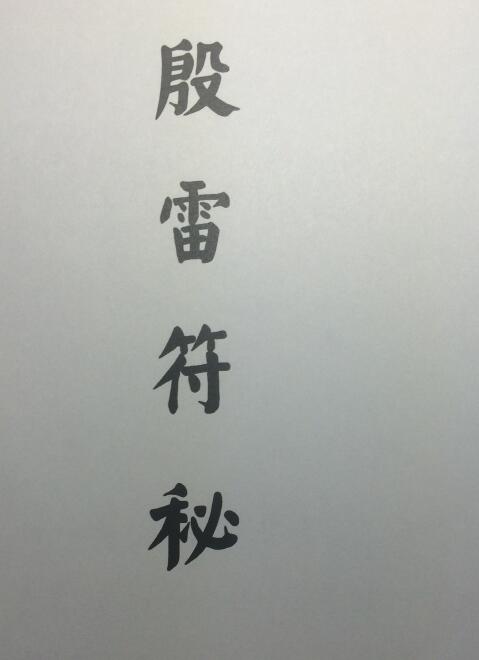 殷雷符秘